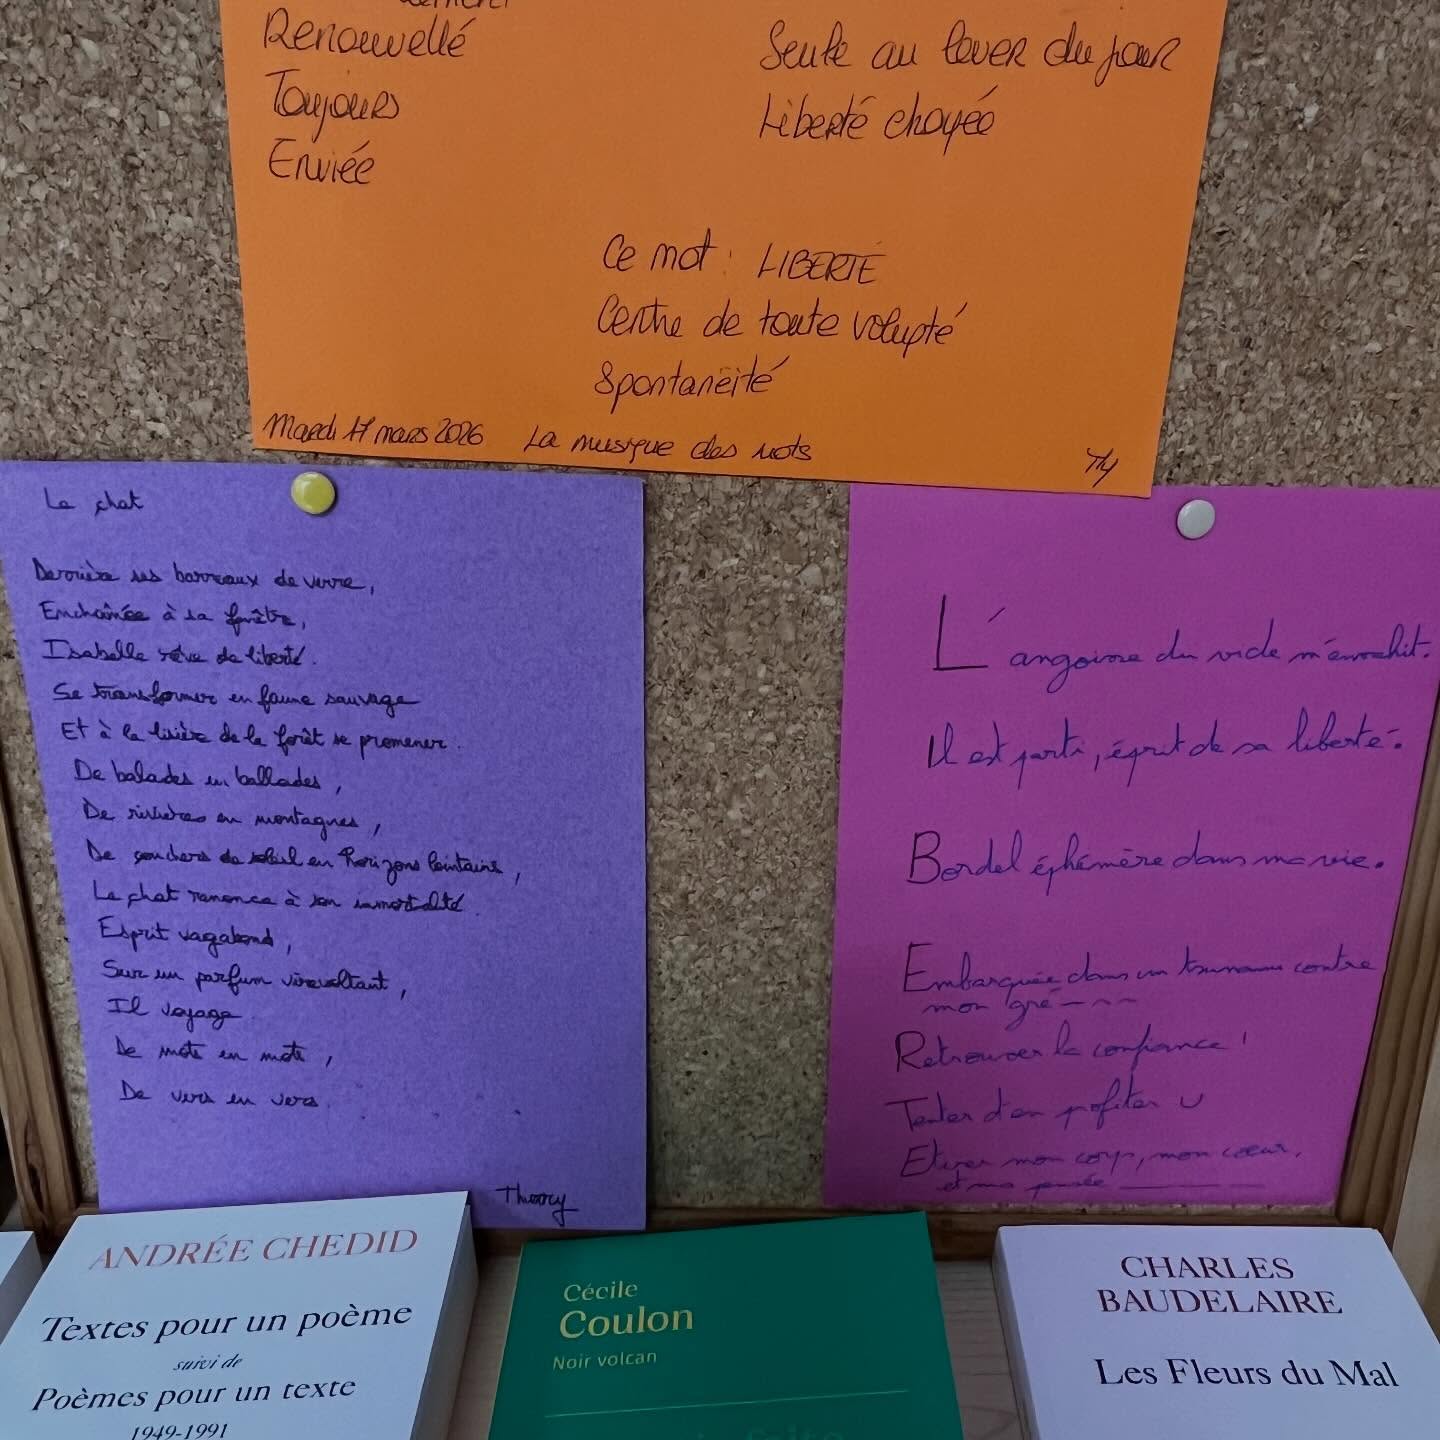 Renouvellé
Toujours
Enviée
Seule au lever du jour
Liberté choyée
Ce mot : LIBERTÉ
Centre de toute volupté
Spontanéité
Mardi 17 mars 2026 La musique des mots
Le chat
Derrière ses barreaux de verre,
Enchaînée à sa fenêtre,
Isabelle rêve de liberté.
Se transformer en faune sauvage
Et à la lisière de la forêt se promener.
De balades en ballades,
De rivières en montagnes,
De couchers de soleil en horizons lointains,
Le chat renonce à son immortalité.
Esprit vagabond,
Sur un parfum virevoltant,
Il voyage
De mots en mots,
De vers en vers.
Thierry
L'angoisse du vide m'envahit.
Il est parti, épris de sa liberté.
Bordel éphémère dans ma vie.
Embarquée dans un tsunami contre
mon gré
Retrouver la confiance !
Tenter d'en profiter
Etirer mon corps, mon coeur,
et ma pensée
ANDRÉE CHEDID
Textes pour un poème
suivi de
Poèmes pour un texte
1949-1991
Cécile
Coulon
Noir volcan
CHARLES
BAUDELAIRE
Les Fleurs du Mal